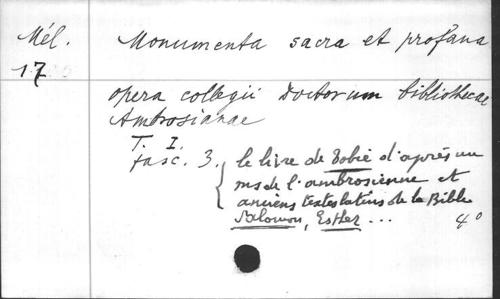 Mél.
17
Monumenta sacra et profana
opera collegii Doctorum bibliothecae
Ambrosianae
T. I.
fasc. 3.
le livre de Tobie d'après un
ms de l'ambrosienne et
anciens textes latins de la Bible
Salomon, Esther ...
4°